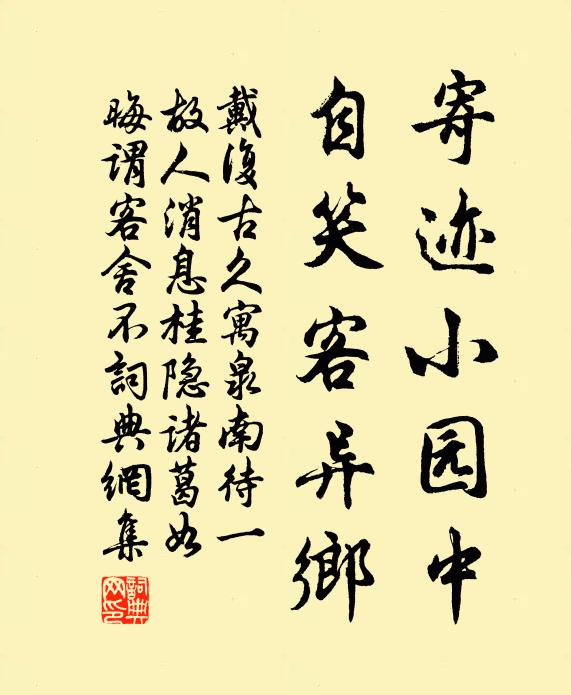 寄迹小园中
自笑客异鄉
戴復古久寓泉南待一
故人消息桂隐诸葛如
晦谓客舍不詞典網集
詞典
网印